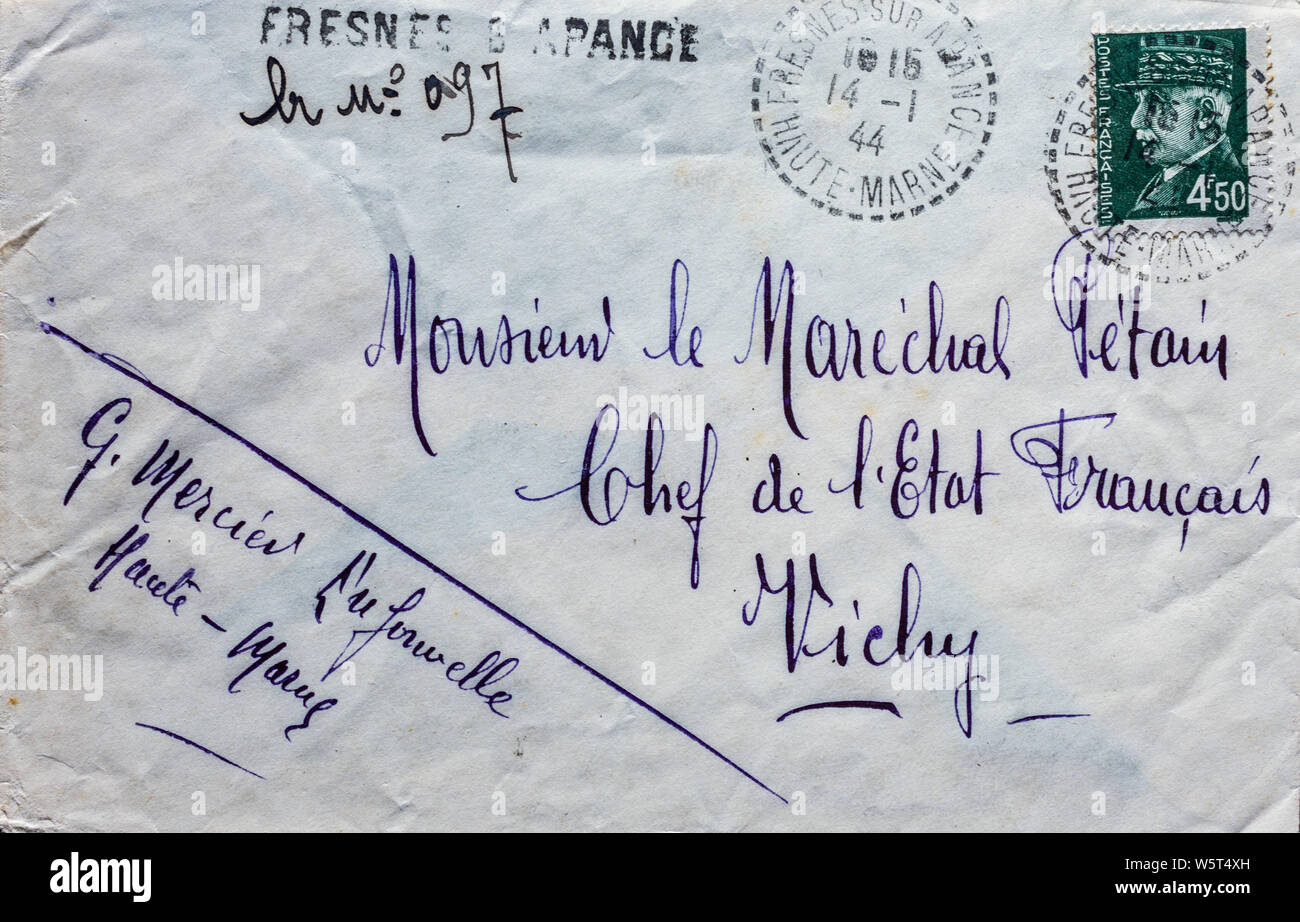 FRESNES S APANCE
Nº 097
FRESNES SUR APANCE
16 15
14 -1
44
HAUTE-MARNE
POSTES FRANÇAISES
4F50
Monsieur le Maréchal Pétain
Chef de l'Etat Français
Vichy
G. Mercier Enfonvelle
Haute-Marne
a alamy stock photo
alamy
Image ID: W5T4XH
www.alamy.com